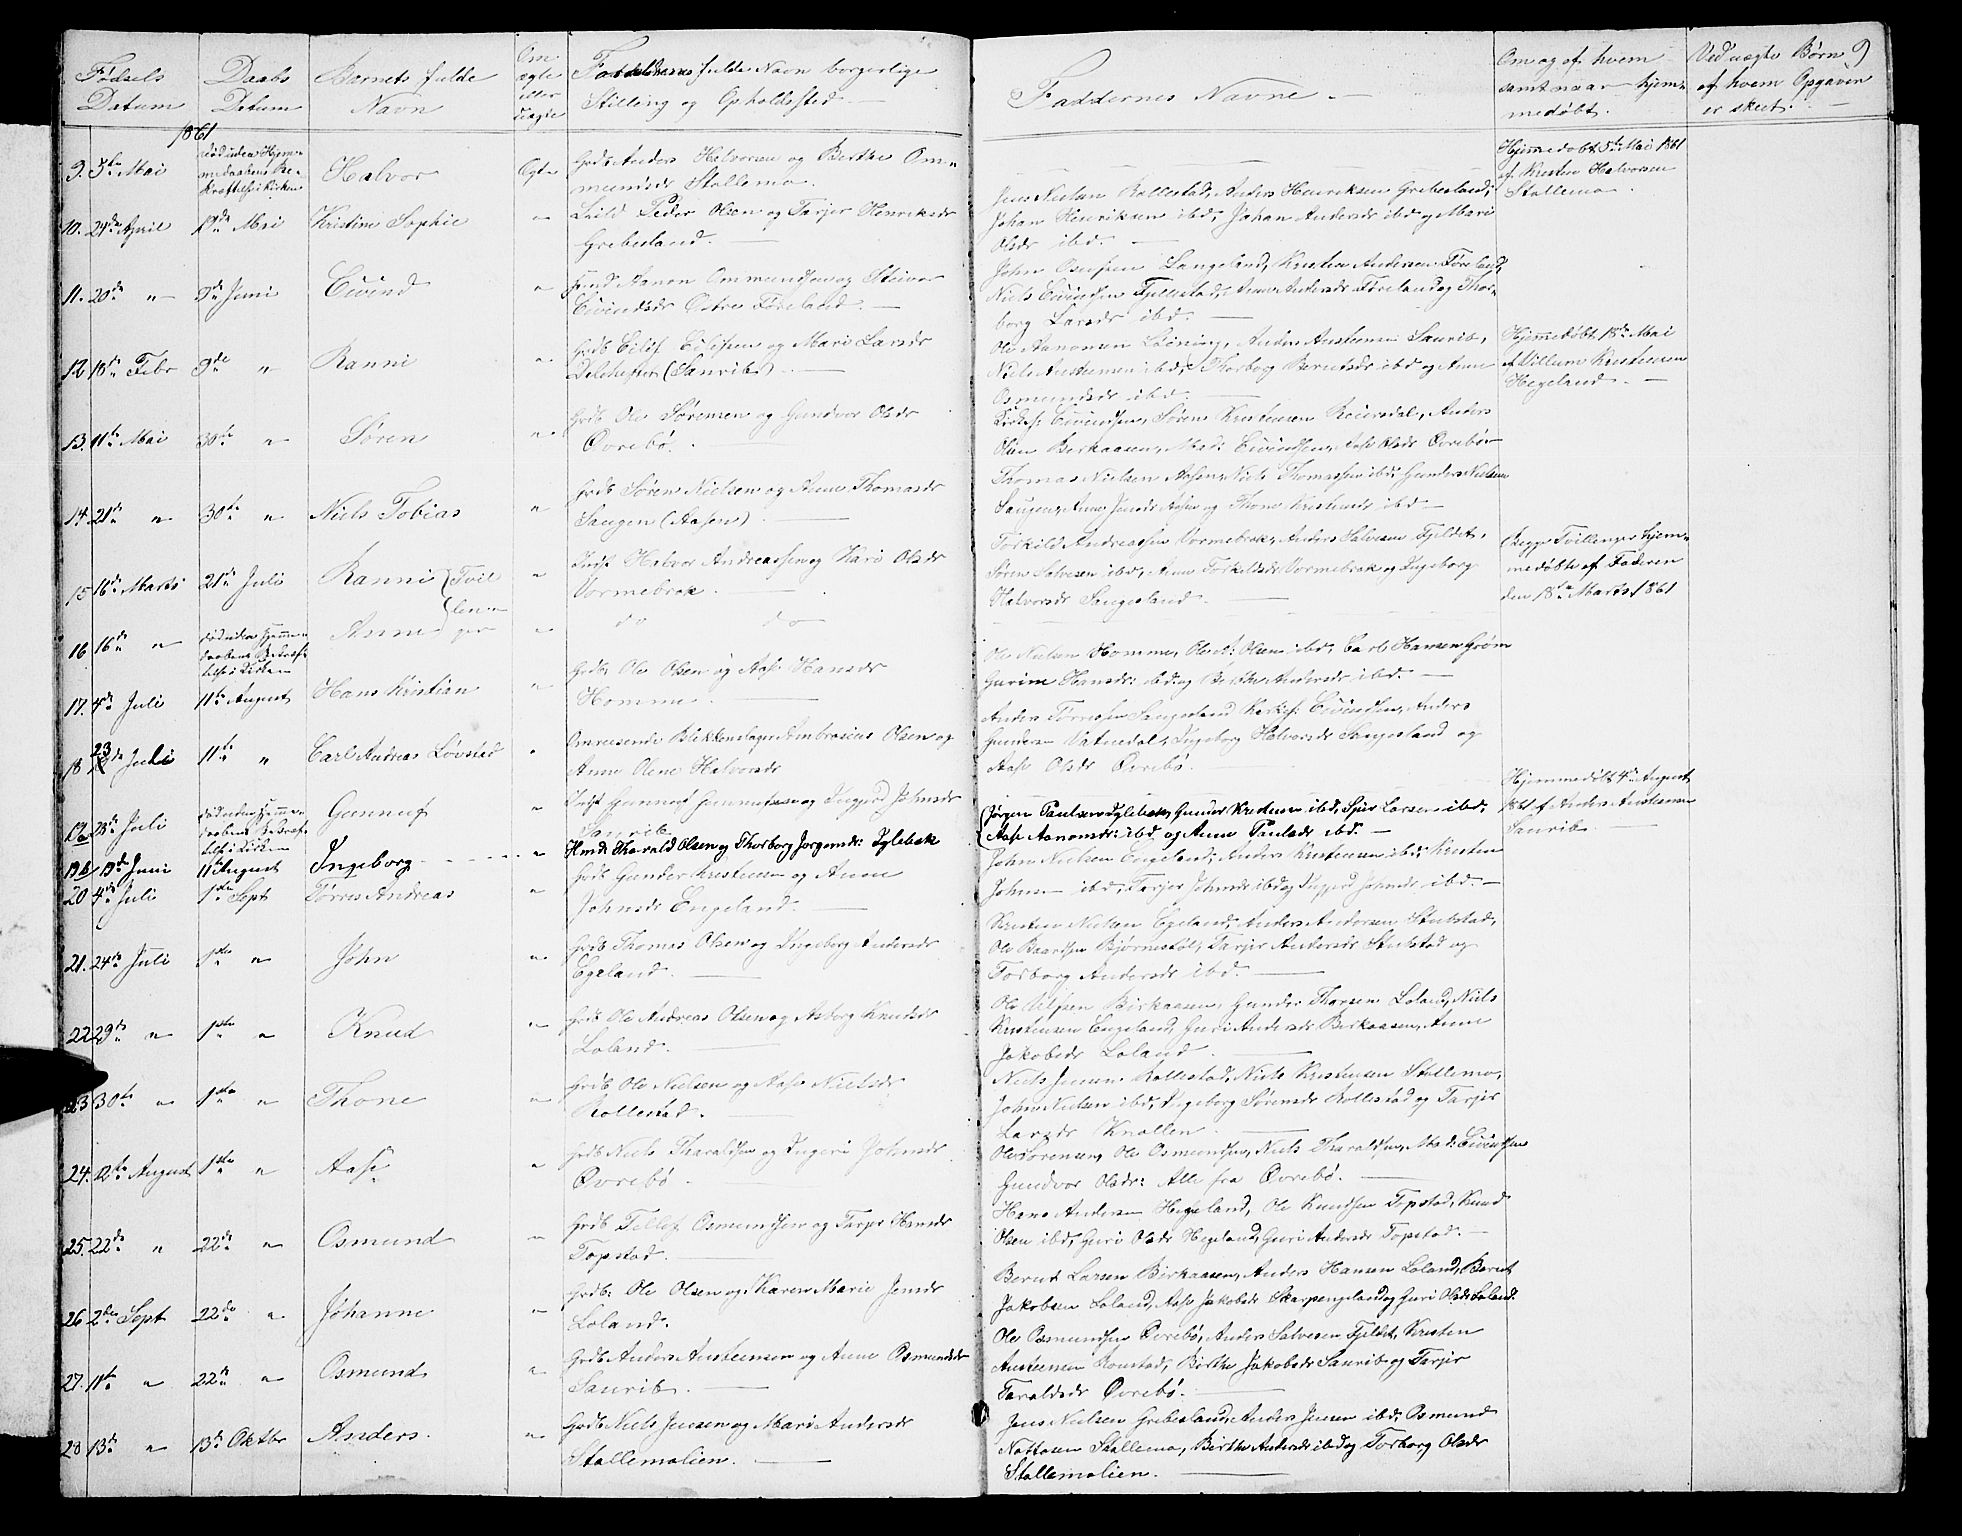 Fødsels
Datum
Daabs
Datum
Barnets fulde
Navn
Om
ægte
eller
uægte
Forældrenes fulde Navn borgerlige
Stilling og Opholdssted
Faddernes Navne
Om og af hvem
samt naar hjem-
medøbt.
Ved uægte Børn
af hvem Opgaven
er skeet.
9
1861
9. 5te Mai
død uden Hjem-
medaabens Be-
kræftelse i Kirken
Halvor
Ægte
Grdb Anders Halvorsen og Berthe Om-
mundsdr Stallemo.
Hjemmedøbt 5te Mai 1861
af Kristen Halvorsen
Stallemo.
10. 24de April 12de Mai Kristine Sophie
Peder Olsen og Tarjer Henriksdr
Grebesland.
Jens Nielsen Rollestad, Anders Henriksen Grebesland,
Johan Henriksen ibd, Johan Andersdr ibd og Mari
Olsdr ibd.
11. 20de " 9de Juni Eivind
Aanon Ommundsen og Steinor
Eivindsdr Øvre Føreland.
John Osufsen Langeland, Kristen Andersen Føreland,
Niels Eivindsen Fjellestad, Anne Andersdr Føreland og Thor-
borg Larsdr ibd.
12. 18de Febr 9de " Ranni
Grdb Eilif Eilifsen og Mari Larsdr
(Sanrib).
Ole Aanonsen Løining, Anders Austensen Sanrib,
Niels Austensen ibd, Thorborg Berntsdr ibd og Anne
Osmundsdr ibd.
Hjemmedøbt 18de Mai
af Villum Kristensen
Hegeland.
13. 11te Mai 30te " Søren
Grdb Ole Sørensen og Gundvor Olsdr
Øvrebø.
Kirkes: Eivindsen, Søren Kristensen Reiersdal, Anders
Olsen Birkaasen, Mad: Eivindsen, Aase Olsdr Øvrebø
14. 21de " 30te " Niels Tobias
Grdb Søren Nielsen og Anne Thomasdr
Saugen (Aasen).
Thomas Nielsen Aasen, Niels Thomassen ibd, Gunder Nielsen
Saugen, Anne Jensdr Aasen og Thone Kristensdr ibd
15 16de Marts 21de Juli Ranni (Tvil
Indst Halvor Andreassen og Kari Olsdr
Vormebrok.
Torkild Andreassen Vormebrok, Anders Salvesen Fjeldet,
Søren Salvesen ibd, Anne Torkildsdr Vormebrok og Ingeborg
Halvorsdr Sangesland.
Begge Tvillinger hjem-
medøbte af Faderen
den 18de Marts 1861
16. 16de "
død uden Hjemme-
daabens Bekræf-
telse i Kirken
Anne (len-
ger
do do
17. 4de Juli 11te August Hans Kristian
Grdb Ole Olsen og Aase Hansdr
Homme.
Ole Nielsen Homme, Ole N: Olsen ibd, Carl Hansen Grøm
Gurine Hansdr: ibd og Berthe Andersdr ibd.
18 23de Juli 11te " Carl Andreas Løvstad
Omreisende Blikkenslager Ambrosius Olsen og
Anne Olene Halvorsdr
Anders Tørresen Sangesland Kirkes: Eivindsen, Anders
Gundersen Vatnedal, Ingeborg Halvorsdr Sangesland og
Aase Olsdr Øvrebø.
19a 28de Juli
død uden Hjemme-
daabens Bekræf-
telse i Kirken
Gunnuf
Indst Gunnuf Gunnufsen og Ingjerd Johnsdr
Sanrib
Hjemmedøbt 4de August
1861 af Anders Austensen
Sanrib
19b 13de Juni 11te August Ingeborg
Hmd: Tharald Olsen og Thorborg Jørgensdr: Iglebæk
Jørgen Paulsen Iglebæk, Gunder Kristensen ibd, Sjur Larsen ibd,
Aase Aanonsdr: ibd og Anne Paulsdr ibd.
20 4de Juli 1ste Sept Tørres Andreas
Grdb Gunder Kristensen og Anne
Johnsdr Engeland.
John Nielsen Engeland, Anders Kristensen ibd, Kristen
Johnsen ibd, Tarjer Johnsdr ibd og Ingjerd Johnsdr ibd.
21. 24de Juli 1ste " John
Grdb Thomas Olsen og Ingeborg Andersdr
Egeland.
Kristen Nielsen Egeland, Anders Andersen Stubstad,
Ole Baardsen Bjørnestøl, Tarjer Andersdr Stubstad og
Torborg Andersdr ibd.
22 29de " 1ste " Knud
Grdb Ole Andreas Olsen og Asborg Knudsdr
Loland.
Ole Ulfsen Birkaasen, Gunder Tharsen Loland, Niels
Kristensen Engeland, Guri Andersdr Birkaasen, Anne
Jakobsdr Loland.
23 30te " 1ste " Thone
Grdb Ole Nielsen og Aase Nielsdr
Rollestad.
Niels Jensen Rollestad, Niels Kristensen Stallemo,
John Nielsen ibd, Ingeborg Sørensdr Rollestad og Tarjer
Larsdr Knollen.
24. 12te August 1ste " Aase
Grdb Niels Tharaldsen og Ingeri Johnsdr
Øvrebø.
Ole Sørensen, Ole Osmundsen, Niels Tharaldsen, Mad: Eivindsen
Gundvor Olsdr: Alle fra Øvrebø.
25. 22de " 22de " Osmund
Grdb Tellef Osmundsen og Tarjer Hansdr
Topstad.
Hans Andersen Hegeland, Ole Knudsen Topstad, Knud
Olsen ibd, Guri Olsdr Hegeland, Guri Andersdr Topstad.
26 2den Sept 22de " Johanne
Grdb: Ole Olsen og Karen Marie Jensdr
Loland.
Bernt Larsen Birkaasen, Anders Hansen Loland, Bernt
Jakobsen Loland, Aase Jakobsdr Skarpengeland og Guri Olsdr Loland.
27. 11te " 22de " Osmund
Grdb Anders Austensen og Anne Osmundsdr
Sanrib.
Ole Osmundsen Øvrebø, Anders Salvesen Fjeldet, Kristen
Austensen Ronstad, Birthe Jakobsdr Sanrib og Tarjer
Taraldsdr Øvrebø.
28 13de " 13de Oktbr Anders.
Grdb Niels Jensen og Mari Andersdr
Stallemolien.
Jens Nielsen Grebesland, Anders Jensen ibd, Osmund
Nottosen Stallemo, Birthe Andersdr ibd og Torborg Olsdr
Stallemolien.